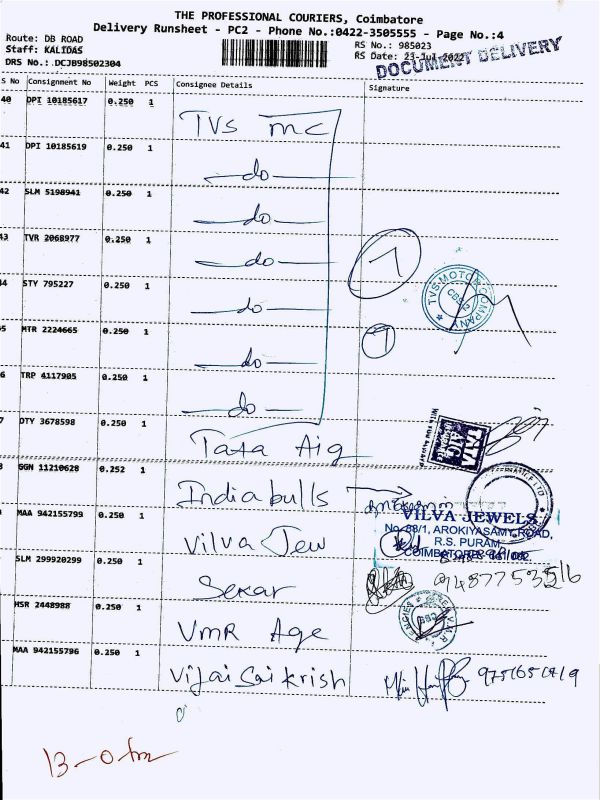 THE PROFESSIONAL COURIERS, Coimbatore
Delivery Runsheet - PC2 - Phone No.:0422-3505555 - Page No.:4
Route: DB ROAD
RS No.: 985023
Staff: KALIDAS
RS Date: 23-Jul-2022
DRS No.: .DCJB98502304
DOCUMENT DELIVERY
S No Consignment No Weight PCS Consignee Details Signature
40 DPI 10185617 0.250 1
TVS mc
41 DPI 10185619 0.250 1
do
42 SLM 5198941 0.250 1
do
43 TVR 2068977 0.250 1
do
7
44 STY 795227 0.250 1
TVS MOTOR COMPANY
do
5 MTR 2224665 0.250 1
do
6 TRP 4117905 0.250 1
do
7 DTY 3678598 0.250 1
Tata Aig
TATA AIG
WITH YOU ALWAYS
GGN 11210628 0.252 1
Indiabulls
MAA 942155799 0.250 1
Vilva Jew
VILVA JEWELS
No. 88/1, AROKIYASAMY ROAD,
R.S. PURAM,
COIMBATORE
SLM 299920299 0.250 1
Sekar
HSR 2448988 0.250 1
VMR Age
MAA 942155796 0.250 1
Vijai Sai Krish